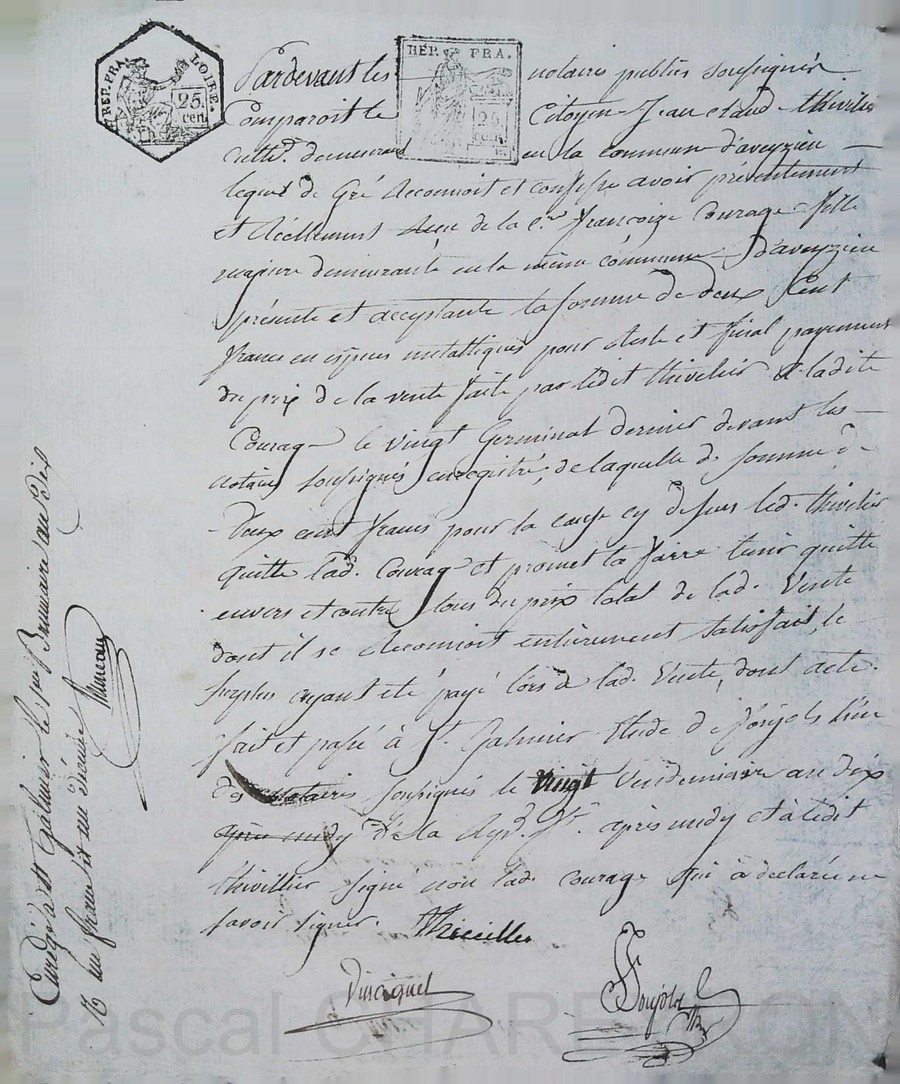 REP. FRA. LOIRE. 25. cen.
REP. FRA. 25 cen.
Pardevant les notaires publics soussignés
Comparoit le Citoyen Jean claud thivilier
demeurant en la commune d'aveyzieu
lequel de Gré Reconnoit et confesse avoir présentement
et Réellement de la c.ne françoize Courage fille
majeure demeurante en la même commune d'aveyzieu
présente et acceptante la somme de deux Cent
francs en espèces metalliques pour Reste et final payement
du prix de la vente faite par ledit thivelier à ladite
Courage le vingt Germinal dernier devant les
notaires soussignés enregistré, de laquelle d. somme de
Deux cent francs pour la cause cy dessus led. thivilier
quitte lad. Courage et promet la faire tenir quitte
envers et contre tous du prix total de lad. Vente
dont il se Reconnoit entièrement satisfait, le
surplus ayant eté payé lors de lad. Vente, dont acte.
fait et passé à St. Galmier Etude de Ponjols l'un
des notaires soussignés le vingt Vendemiaire an dix
après midy de la Rep. fr. après midy et à ledit
thivillier signé non lad. Courage qui à déclaré ne
savoir signer. Thivillier
Vincignet
Ponjols
Enregé à St Galmier le neuf Brumaire an dix
R un franc dix un décime
Pascal CHARENTON